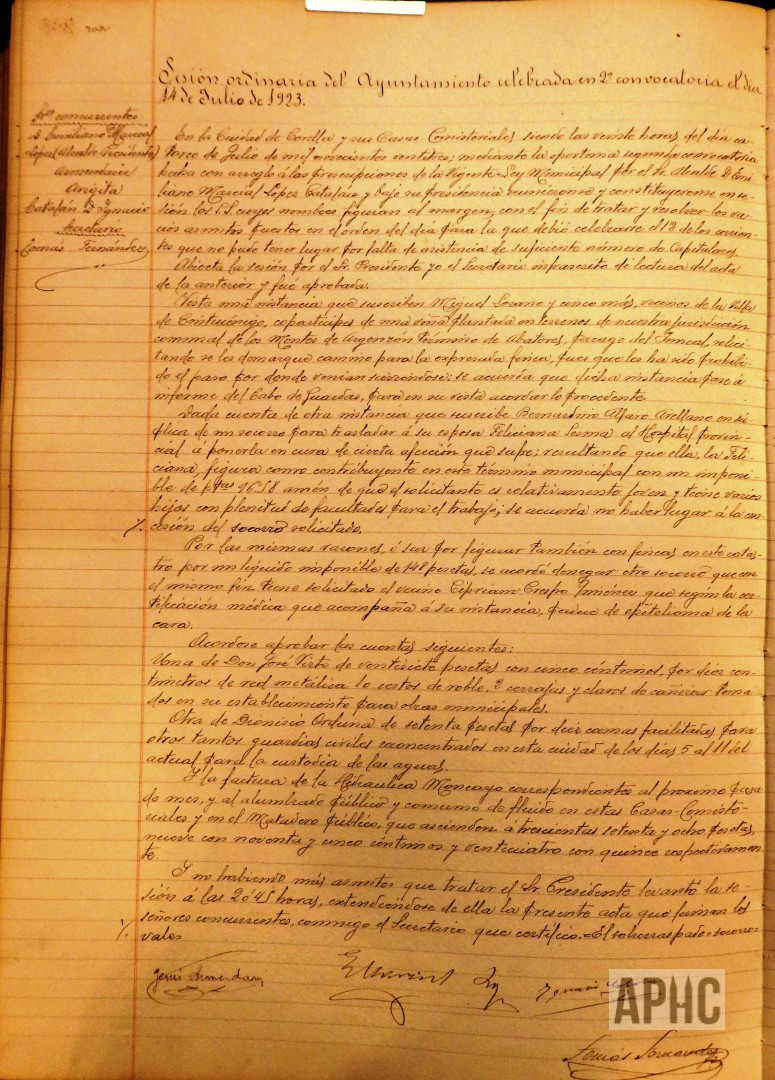 Sesión ordinaria del Ayuntamiento celebrada en 2ª convocatoria el día
14 de Julio de 1923.
Sres concurrentes
D. Emiliano Marcial
López (Alcalde Presidente)
Armendariz
Angita
Catalán D. Ignacio
Secretario
Tomás Fernández
En la Ciudad de Corella y sus Casas Consistoriales siendo las veinte horas del día ca-
torce de Julio de mil novecientos veintitres; mediante la oportuna segunda convocatoria
hecha con arreglo á las prescripciones de la vigente Ley Municipal por el Sr. Alcalde D. Emi-
liano Marcial López Catalán y bajo su Presidencia reunieronse y constituyeronse en se-
sión los S.S. cuyos nombres figuran al margen, con el fin de tratar y resolver los va-
rios asuntos puestos en el orden del día para la que debió celebrarse el 12 de los corrien-
tes que no pudo tener lugar por falta de asistencia de suficiente número de Capitulares.
Abierta la sesión por el Sr. Presidente yo el Secretario infrascrito dí lectura del acta
de la anterior y fué aprobada.
Vista una instancia que suscriben Miguel Lozano y cinco más, vecinos de la Villa
de Cintruénigo, coparticipes de una viña plantada en terrenos de nuestra jurisdicción
comunal de los Montes de Argenzón término de Abatores, paraje del Juncal, solici-
tando se les demarque camino para la expresada finca, pues que les ha sido prohibi-
do el paso por donde venian sirviendose; se acuerda que dicha instancia pase á
informe del Cabo de Guardas, para en su vista acordar lo procedente.
Dada cuenta de otra instancia que suscribe Bernardino Alfaro Arellano en sú-
plica de un socorro para trasladar á su esposa Feliciana Sesma al Hospital provin-
cial á ponerla en cura de cierta afección que sufre; resultando que ella, la Feli-
ciana, figura como contribuyente en este término municipal con un imponi-
ble de ptas 96'58 amén de que el solicitante es relativamente joven y tiene varios
hijos con plenitud de facultades para el trabajo; se acuerda no haber lugar á la con-
cesión del socorro solicitado.
Por las mismas razones, ó sea por figurar también con fincas en este catas-
tro por un líquido imponible de 148 pesetas, se acordó denegar otro socorro que con
el mismo fin tiene solicitado el vecino Cipriano Crespo Jiménez que según la cer-
tificación médica que acompaña á su instancia, padece de epitelioma de la
cara.
Acordose aprobar las cuentas siguientes:
Una de Don José Virto de veintisiete pesetas con cinco céntimos, por diez cen-
tímetros de red metálica 10 costos de roble, 2 cerrajas y clavos de cañizar toma-
dos en su establecimiento para obras municipales.
Otra de Dionisio Orduna de setenta pesetas por diez camas facilitadas para
otros tantos guardias civiles reconcentrados en esta ciudad de los días 5 al 11 del
actual para la custodia de las aguas.
Y la factura de la Hidraulica Moncayo correspondientes al proximo pasa-
do mes, y al alumbrado público y consumo de fluido en estas Casas-Consisto-
riales y en el Matadero público, que ascienden á trescientas setenta y ocho pesetas,
nueve con noventa y cinco céntimos y veinticuatro con quince respectivamen-
te.
Y no habiendo más asuntos que tratar el Sr. Presidente levantó la se-
sión á las 20'45 horas, extendiendose de ella la presente acta que firman los
señores concurrentes, conmigo el Secretario que certifico.=El sobrerraspado=socorro=
vale=
Jesús Armendariz
Tomás Fernández
APHC